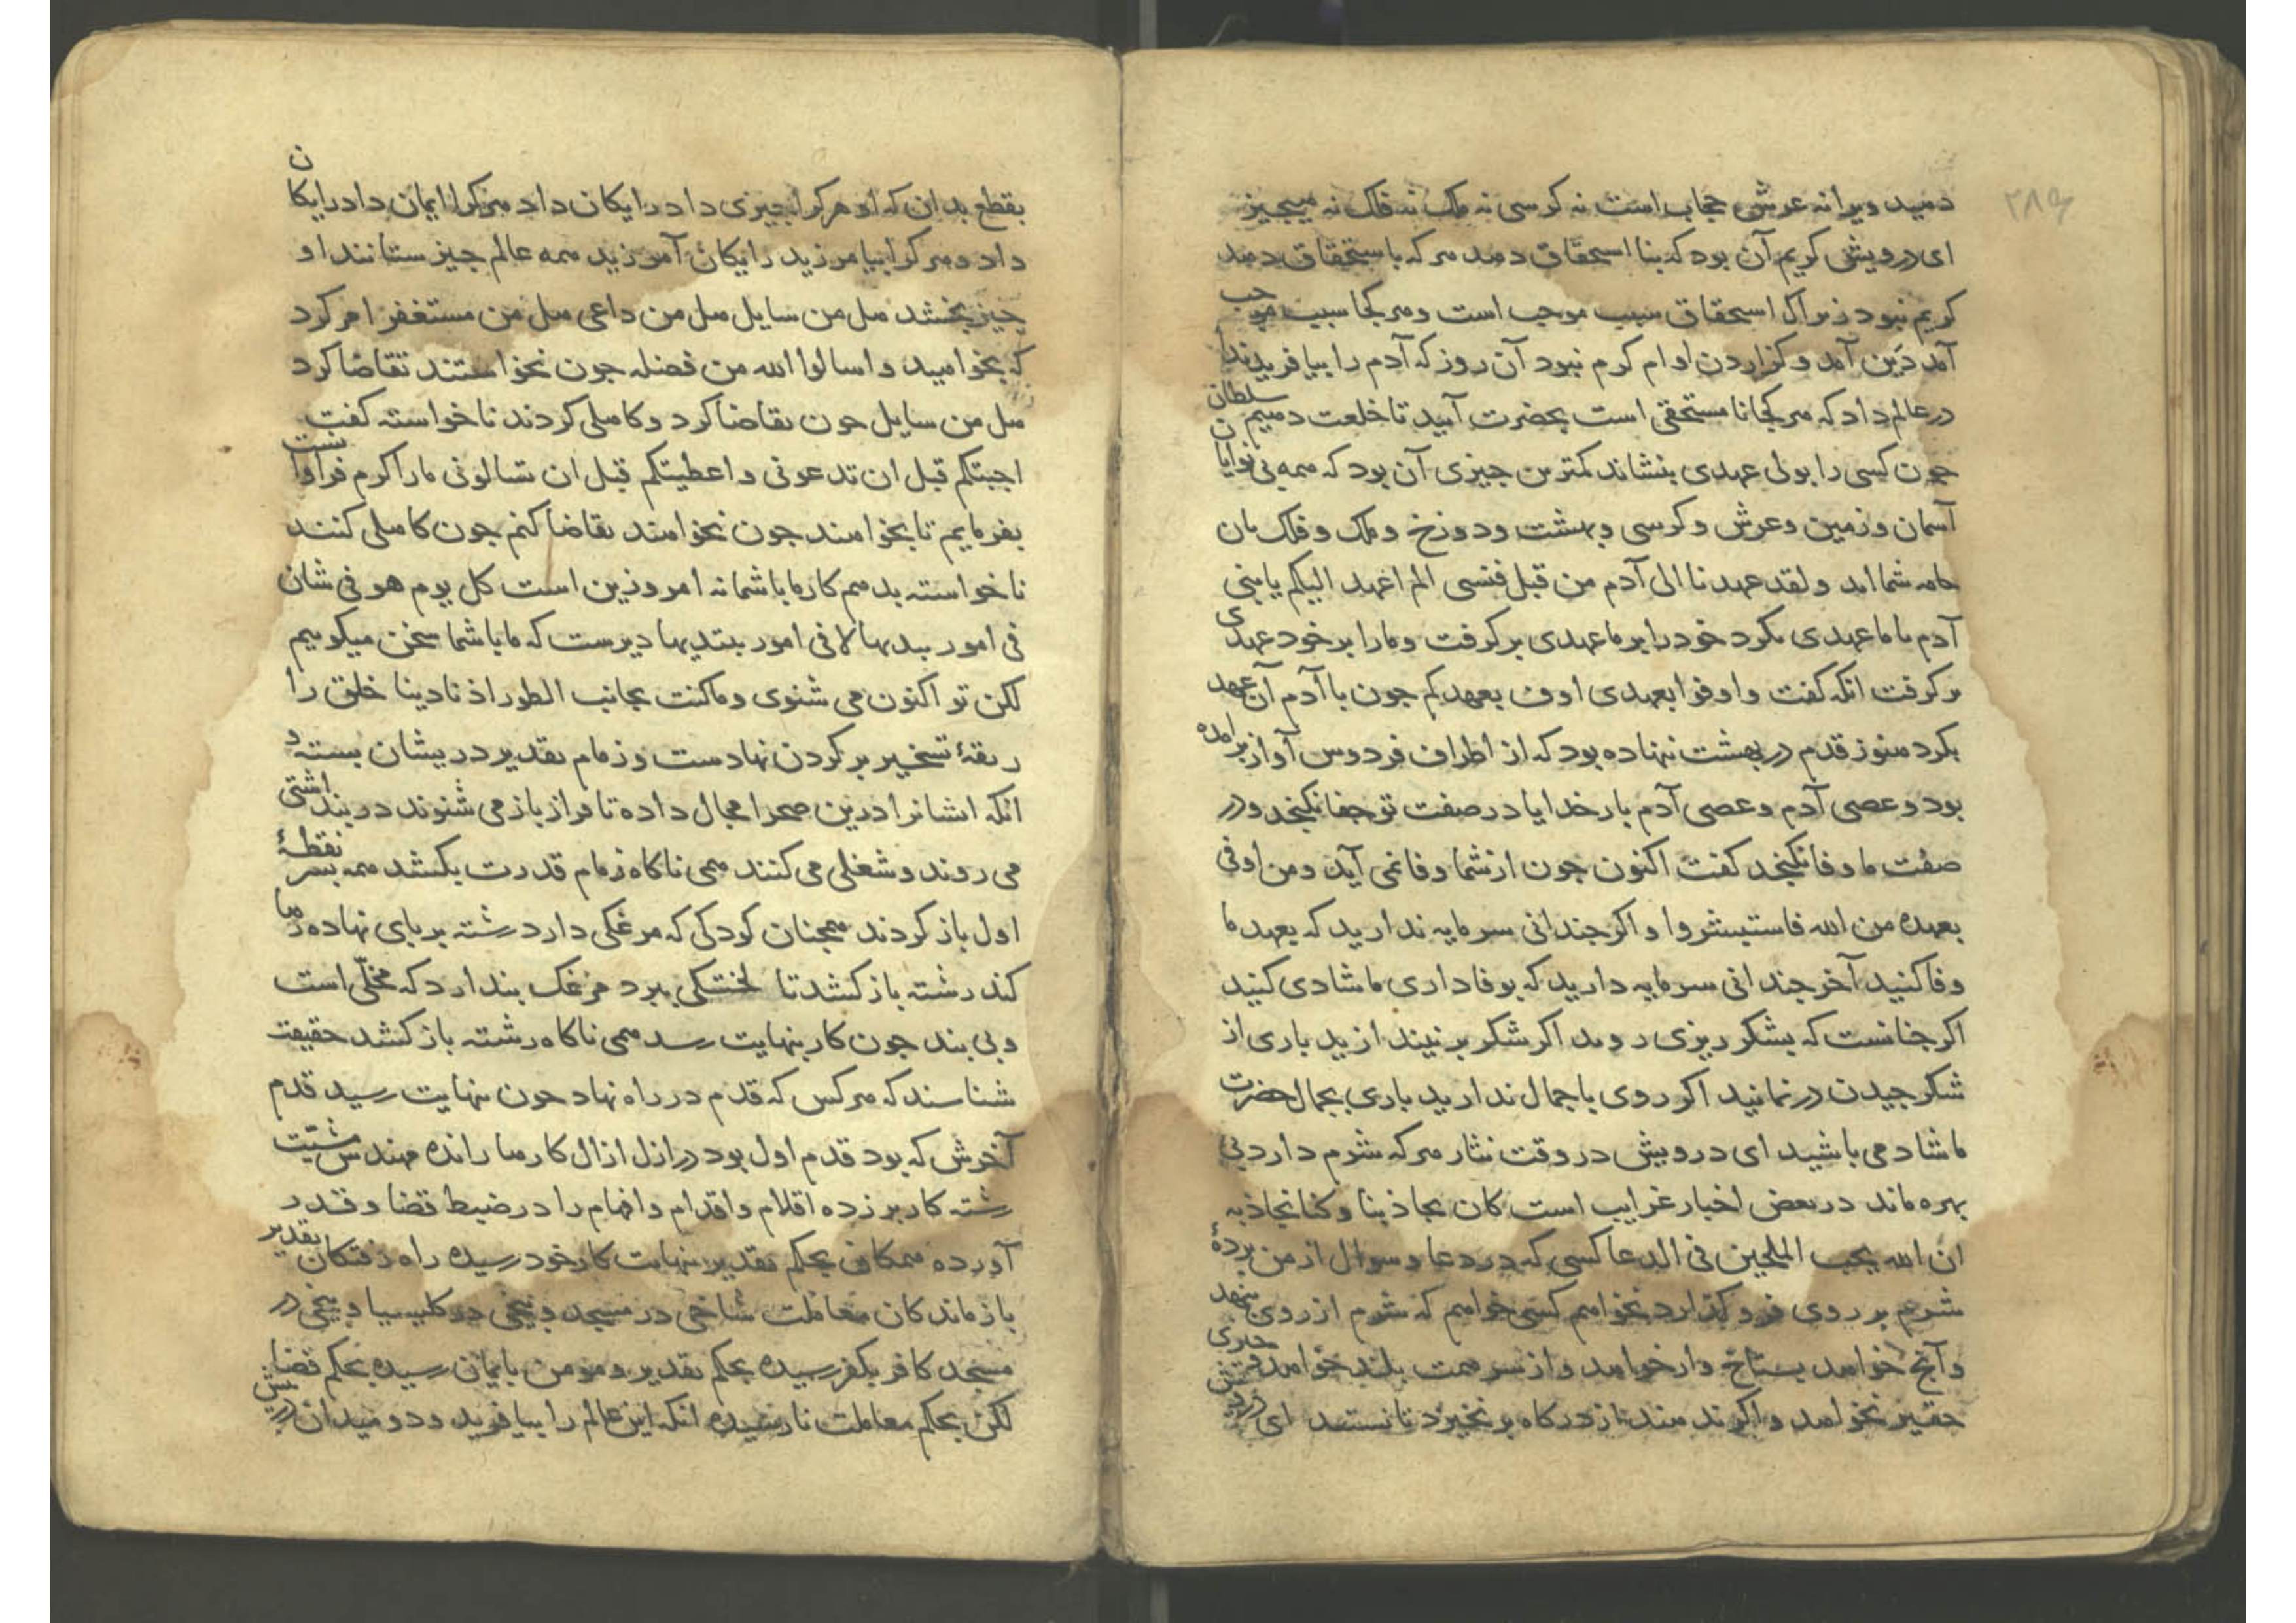 ۲۸۹
دهید ویرا نه عرش حجاب است نه کرسی نه ملک نه فلک نه هیچیز
ای درویش کریم آن بود که بنا استحقاق دهد هر که باستحقاق دهد
کریم نبود زیراک استحقاق سبب موجب است و هر کجا سبب موجب
آمد دَین آمد و کزاردن اوام کرم نبود آن روز که آدم را بیافرید ندا
در عالم داد که هر کجا نا مستحقی است بحضرت آیید تا خلعت دهیم سلطان
جون کسی را بولی عهدی بنشاند کمترین جیزی آن بود که همه بی نوایان
آسمان و زمین و عرش و کرسی و بهشت و دوزخ و ملک و فلک بان
جامه شما اند و لقد عهدنا الی آدم من قبل فنسی الم اعهد الیکم یا بنی
آدم با ما عهدی بکرد خود را بر ما عهدی برکرفت و مارا بر خود عهدی
برکرفت انکه کفت و اوفوا بعهدی اوف بعهدکم جون با آدم آن عهد
بکرد هنوز قدم در بهشت ننهاده بود که از اطراف فردوس آواز برامده
بود و عصی آدم و عصی آدم بار خدایا در صفت تو جفا نکنجد و در
صفت ما وفا نکنجد کفت اکنون جون از شما وفا نمی آید و من اوفی
بعهده من الله فاستبشروا و اکر جندانی سرمایه ندارید که بعهد ما
وفا کنید آخر جندانی سرمایه دارید که بوفاداری ما شادی کنید
اکر جنانست که بشکر ریزی روید اکر شکر بر نیندازید باری از
شکر جیدن در نمانید اکر روی با جمال ندارید باری بجمال حضرت
ما شاد می باشید ای درویش در وقت نثار هر که شرم دارد بی
بهره ماند در بعض اخبار غرایب است کان یجاذبنا و کنا نجاذبه
ان الله یحب الملحین فی الدعا کسی که در دعا و سوال از من بردهٔ
شرم بر روی فرو کذارد نخواهم کسی خواهم که شرم از روی بنهد
و آنج خواهد بستاخ وار خواهد و از سر همت بلند خواهد جیزی
حقیر نخواهد و اکر ندهند از درکاه بر نخیزد تا نستند ای درویش
بقطع بدان که او هر کرا جیزی داد رایکان داد هر کرا ایمان داد رایکان
داد و هر کرا بیامرزید رایکان آمرزید همه عالم جیز ستانند او
جیز بخشد هل من سایل هل من داعی هل من مستغفر امر کرد
که بخواهید و اسالوا الله من فضله جون نخواستند تقاضا کرد
هل من سایل جون تقاضا کرد و کاهلی کردند ناخواسته کفت
اجبتکم قبل ان تدعونی و اعطیتکم قبل ان تسالونی مارا کرم فراوانست
بفرماییم تا بخواهند جون نخواهند تقاضا کنم جون کاهلی کنند
ناخواسته بدهم کار ما با شما نه امروزین است کل یوم هو فی شان
فی امور یبدیها لا فی امور یبتدیها دیرست که ما با شما سخن میکوییم
لکن تو اکنون می شنوی و ما کنت بجانب الطور اذ نادینا خلق را
ربقهٔ تسخیر بر کردن نهادست و زمام تقدیر در بیشان بسته و
انکه ایشانرا درین صحرا مجال داده تا فراز باز می شنوند در بند اشتی
می روند و شغلی می کنند همی ناکاه زمام قدرت بکشد همه بسر نقطهٔ
اول باز کردند همجنان کودکی که مرغکی دارد رشته بر بای نهاده رها
کند رشته باز کشد تا لختکی ببرد مرغک بندارد که مخلّی است
و بی بند جون کار بنهایت رسد همی ناکاه رشته باز کشد حقیقت
شناسند که هر کس که قدم در راه نهاد جون بنهایت رسید قدم
آخرش که بود قدم اول بود در ازل ازال کارها رانده مهندس مشیّت
رشته کار بر زده اقلام و اقدام و افهام را در ضبط قضا و قدر
آورده همکان بحکم تقدیر بنهایت کار خود رسیده راه رفتکان تقدیر
باز ماندکان معاملت شاخی در مسجد و بیخی در کلیسیا و بیخی در
مسجد کافر بکفر رسیده بحکم تقدیر و مومن بایمان رسیده بحکم قضا
لکن بحکم معاملت نارسیده انکه این عالم را بیافرید و دو میدان در بیش